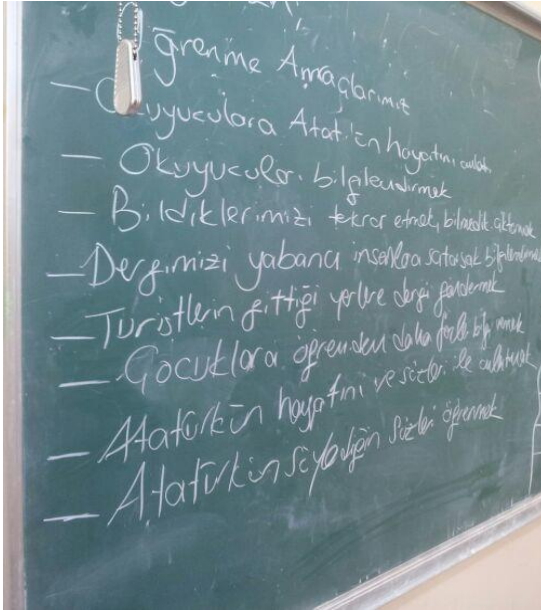 ğrenme Amaçlarımız
- Okuyuculara Atat.'ün hayatını anlat.
- Okuyucuları bilgilendirmek
- Bildiklerimizi tekrar etmek, bilmedik
- Dergimizi yabancı insanlara satarsak bilgilendirme
- Turistlerin gittiği yerlere dergi göndermek
- Çocuklara öğrenden daha fazla bilgi
- Atatürkün hayatını ve sözleri ile anlatmak
- Atatürkün söylediğin sözleri öğrenmek